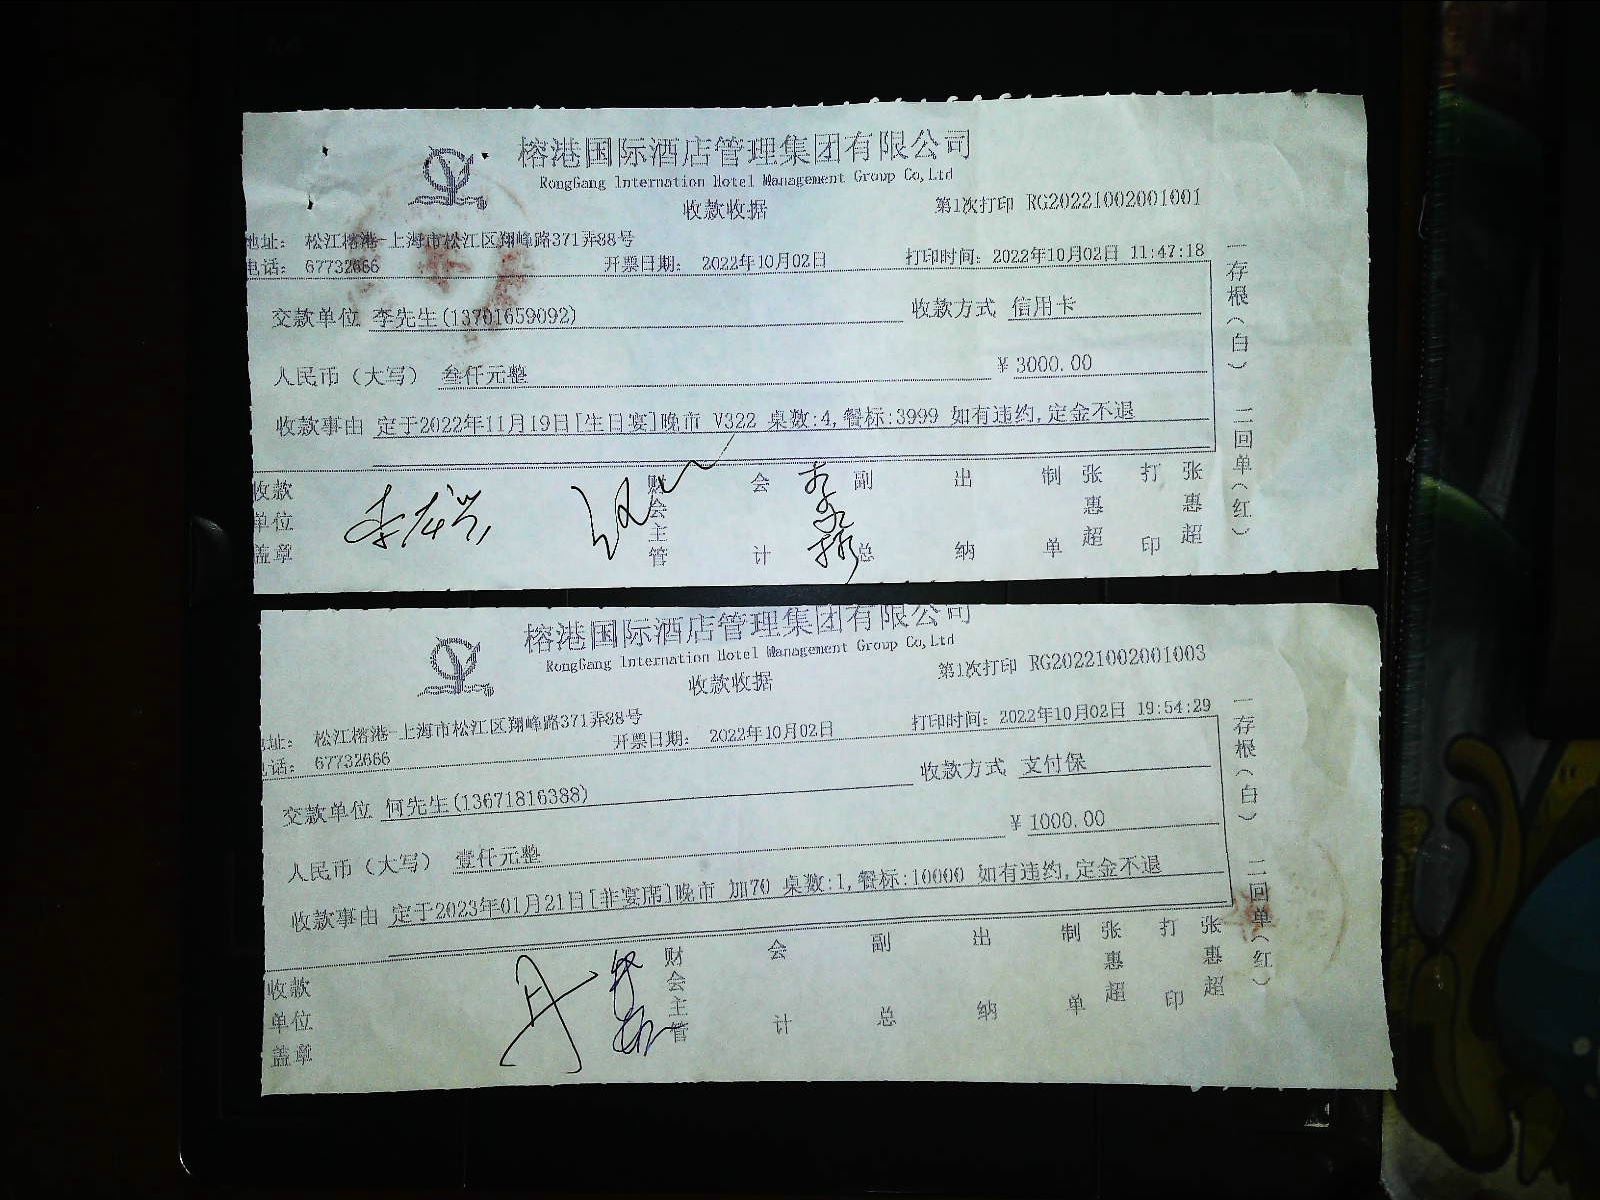 榕港国际酒店管理集团有限公司
RongGang Internation Hotel Management Group Co,Ltd
收款收据
第1次打印 RG20221002001001
地址： 松江榕港-上海市松江区翔峰路371弄88号
电话： 67732666
开票日期： 2022年10月02日
打印时间：2022年10月02日 11:47:18
交款单位 李先生(13701659092)
收款方式 信用卡
人民币（大写） 叁仟元整
￥3000.00
收款事由 定于2022年11月19日[生日宴]晚市 V322 桌数:4,餐标:3999 如有违约,定金不退
收款单位盖章
财会主管
会计
副总
出纳
制单
张惠超
打印
张惠超
一存根（白） 二回单（红）
榕港国际酒店管理集团有限公司
RongGang Internation Hotel Management Group Co,Ltd
收款收据
第1次打印 RG20221002001003
地址： 松江榕港-上海市松江区翔峰路371弄88号
电话： 67732666
开票日期： 2022年10月02日
打印时间：2022年10月02日 19:54:29
交款单位 何先生(13671816388)
收款方式 支付保
人民币（大写） 壹仟元整
￥1000.00
收款事由 定于2023年01月21日[非宴席]晚市 加70 桌数:1,餐标:10000 如有违约,定金不退
收款单位盖章
财会主管
会计
副总
出纳
制单
张惠超
打印
张惠超
一存根（白） 二回单（红）